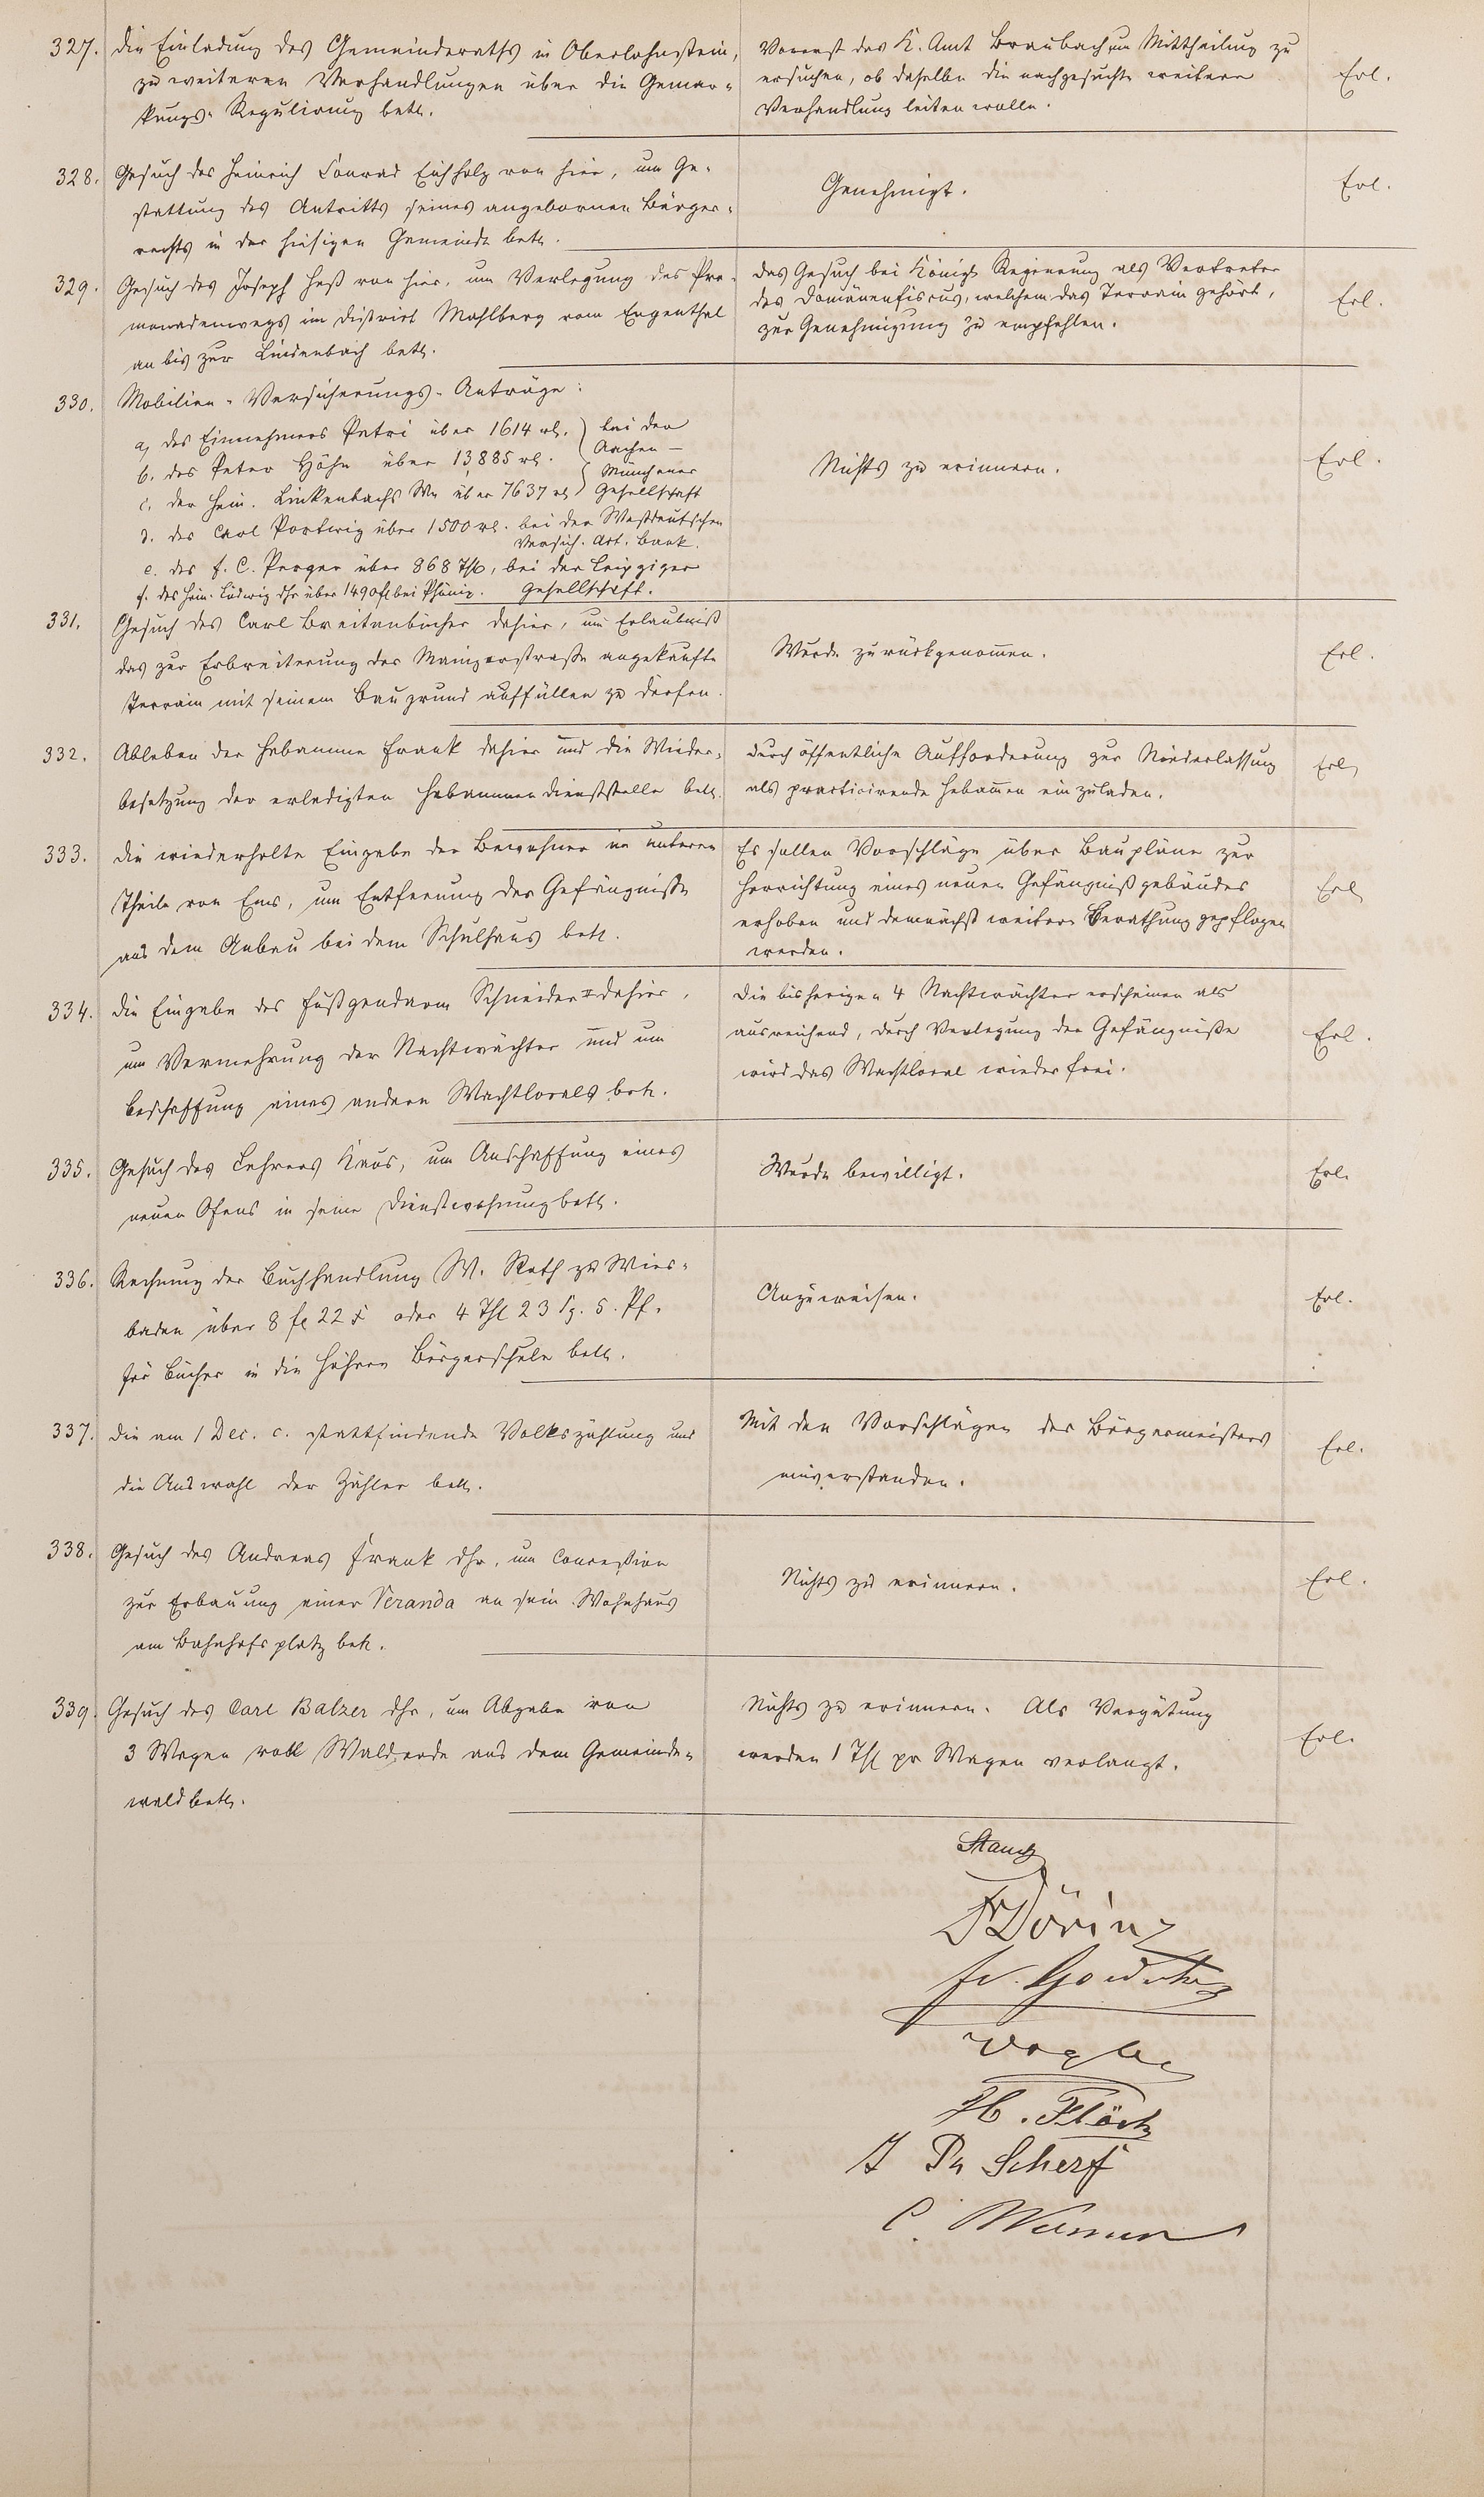 327. Die Einladung des Gemeinderaths in Oberlahnstein,
zu weiteren Verhandlungen über die Gemar-
kungs-Regulirung betr.
Vorerst das K. Amt Braubach um Mittheilung zu
ersuchen, ob daselbe die nachgesuchte weitere
Verhandlung leiten wolle.
Erl.
328. Gesuch des Heinrich Conrad Eichholz von hier, um Ge-
stattung des Antritts seines angebornen Bürger-
rechts in der hiesigen Gemeinde betr.
Genehmigt.
Erl.
329. Gesuch des Joseph Heß von hier, um Verlegung des Pro-
menadenwegs im District Mahlberg vom Engenthal
an bis zur Lindenbach betr.
Das Gesuch bei Königl. Regierung als Vertreter
des Domänenfiscus, welchem das Terrain gehört,
zur Genehmigung zu empfehlen.
Erl.
330. Mobilien-Versicherungs-Anträge:
a, des Einnehmers Petri über 1614 rl. bei der
b. des Peter Höhn über 13,885 rl. Aachen-
Münchener
c. der Hein. Linkenbachs We über 7637 rl. Gesellschaft
d. des Carl Portwig über 1500 rl. bei der Westdeutschen
Versich. Act. Bank.
e. des F. C. Perger über 868 Thl, bei der Leipziger
f. des Hein. Ludwig dhr über 1490 fl bei Phönix. Gesellschaft.
Nichts zu erinnern.
Erl.
331. Gesuch des Carl Breitenbücher dahier, um Erlaubniß
das zur Erbreiterung der Mainzerstraße angekaufte
Terrain mit seinem Baugrund auffüllen zu dürfen.
Wurde zurückgenommen.
Erl.
332. Ableben der Hebamme Frank dahier und die Wieder-
besetzung der erledigten Hebammendienststelle betr.
Durch öffentliche Aufforderung zur Niederlassung
als practicirende Hebamen einzuladen.
Erl.
333. Die wiederholte Eingabe der Bewohner im unteren
Theile von Ems, um Entfernung der Gefängniße
aus dem Anbau bei dem Schulhaus betr.
Es sollen Vorschläge über Baupläne zur
Herrichtung eines neuen Gefängnißgebäudes
erhoben und demnächst weitere Berathung gepflogen
werden.
Erl.
334. Die Eingabe des Fußgendarm Schneider II dahier,
um Vermehrung der Nachtwächter und um
Beschaffung eines andern Wachtlocals betr.
Die bisherigen 4 Nachtwächter erscheinen als
ausreichend, durch Verlegung der Gefängniße
wird das Wachtlocal wieder frei.
Erl.
335. Gesuch des Lehrers Kaus, um Anschaffung eines
neuen Ofens in seine Dienstwohnung betr.
Wurde bewilligt.
Erl.
336. Rechnung der Buchhandlung W. Roth zu Wies-
baden über 8 fl 22 x oder 4 Thl 23 Sg. 5. Pf.
für Bücher in die höhere Bürgerschule betr.
Anzuweisen.
Erl.
337. Die am 1 Dec. c. stattfindende Volkszählung und
die Auswahl der Zähler betr.
Mit den Vorschlägen des Bürgermeisters
einverstanden.
Erl.
338. Gesuch des Andreas Frank dhr, um Conceßion
zur Erbauung einer Veranda an sein Wohnhaus
am Bahnhofsplatz betr.
Nichts zu erinnern.
Erl.
339. Gesuch des Carl Balzer dhr, um Abgabe von
3 Wagen voll Walderde aus dem Gemeinde-
wald betr.
Nichts zu erinnern. Als Vergütung
werden 1 Thl pr Wagen verlangt.
Erl.
F Döring
Vogler
H. Flöck
J Ph Scherf